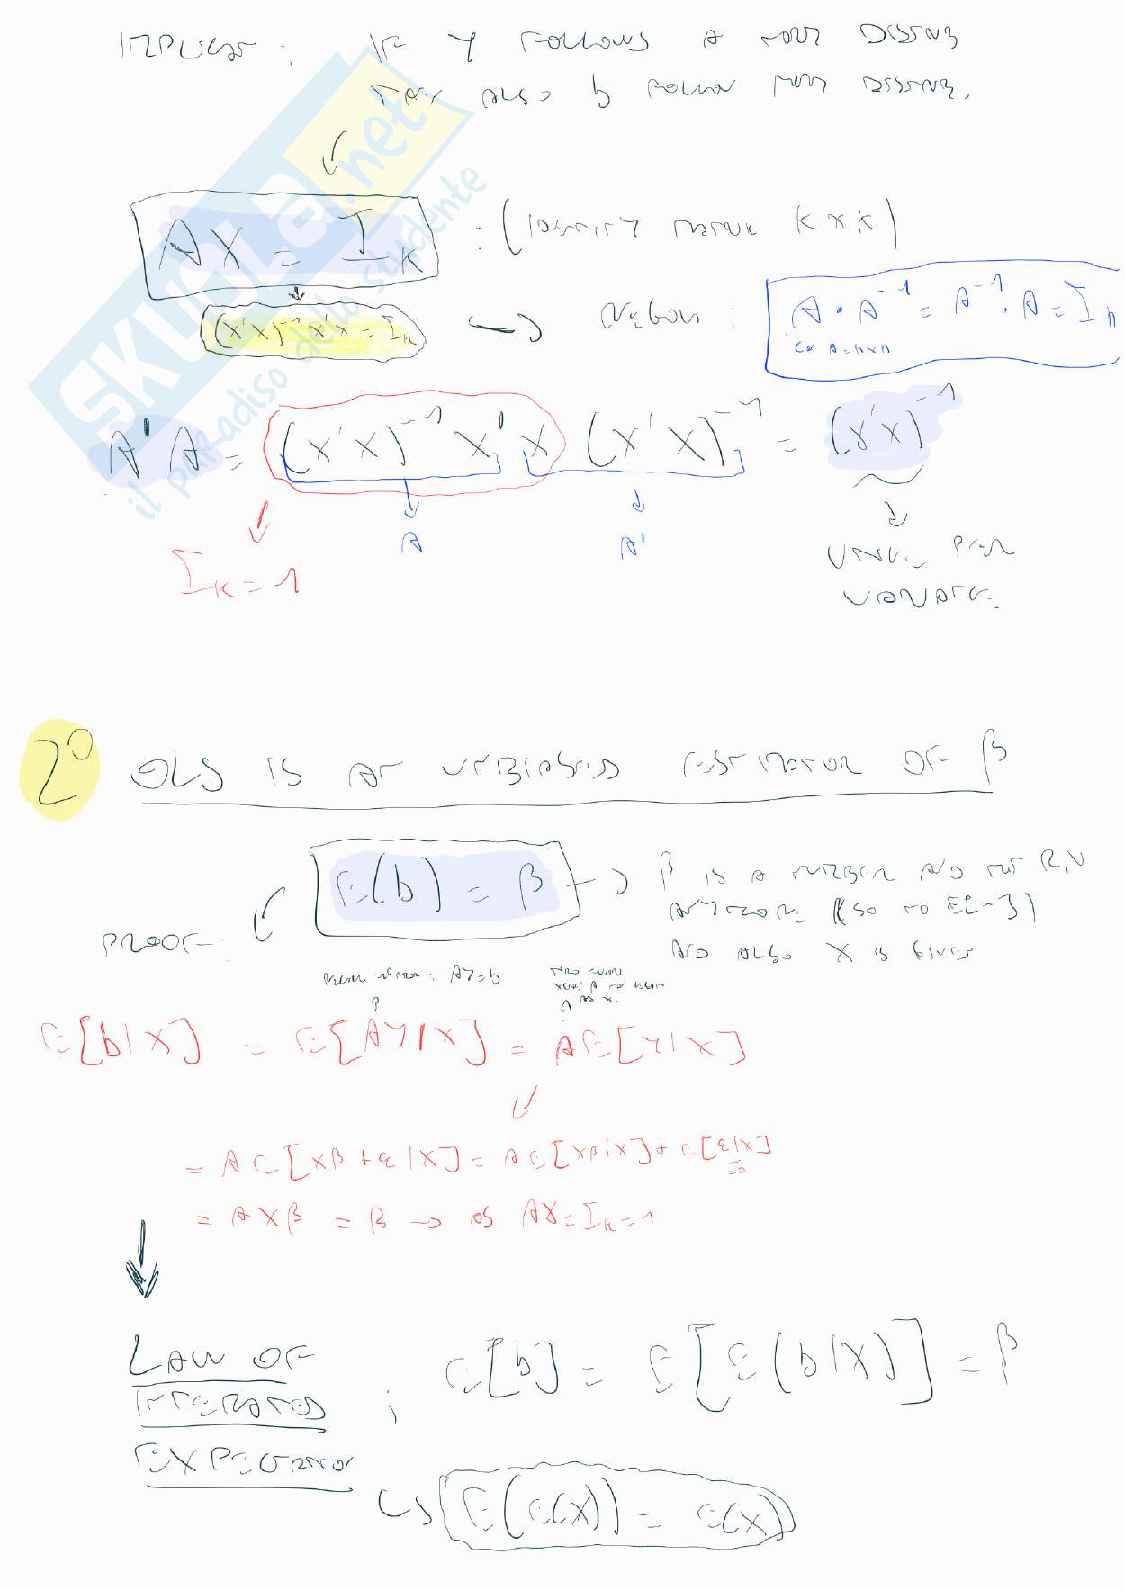 IMPLICAT: IF Y FOLLOWS A NORM DISTRIB
THEN ALSO b FOLLOW NORM DISTRIB.
AX = I_K : (IDENTITY MATRIX K x K)
(X'X)⁻¹ X'X = I_K → A · A⁻¹ = A⁻¹ · A = I_n
A = n x n
A'A = (X'X)⁻¹ X' X (X'X)⁻¹ = (X'X)⁻¹
A A'
I_K = 1
USEFUL FOR
VARIANCE.
SKUOLA.net
il paradiso dello studente
2° OLS IS AN UNBIASED ESTIMATOR OF β
E(b) = β → β IS A NUMBER AND NOT R.V
ANYMORE (SO NO E[~])
PROOF AND ALSO X IS GIVEN
: AY = b
E[b|X] = E[AY|X] = AE[Y|X]
= AE[Xβ + ε|X] = AE[Xβ|X] + E[ε|X]
=0
= AXβ = β → AS AX = I_K = 1
LAW OF
ITERATED ; E[b] = E[E(b|X)] = β
EXPECTATION
↳ (E(E(X)) = E(X))